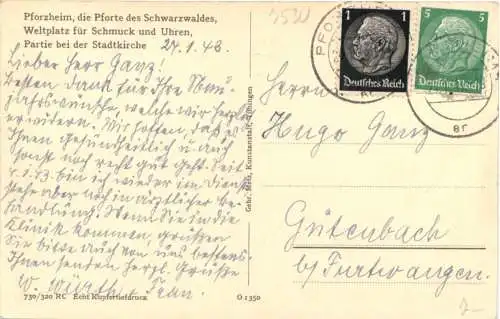 Pforzheim, die Pforte des Schwarzwaldes,
Weltplatz für Schmuck und Uhren,
Partie bei der Stadtkirche
24.1.43.
Lieber Herr Ganz!
Besten Dank für Ihre Neu-
jahrswünsche, welche wir herzl.
erwidern. Wir hoffen, daß es
Ihnen gesundheitlich u. auch
sonst noch recht gut geht. Seit
4.1.43. bin ich wieder im Dienst
stehe aber noch in ärztlicher Be-
handlung. Wenn Sie in die
Klinik kommen, grüßen
Sie bitte auch von uns bestens.
Ihnen senden herzl. Grüße
W. Würth u. Frau.
730/320 RC Echt Kupfertiefdruck O 1350
Gebr. Metz, Kunstanstalt, Tübingen
1 1
Deutsches Reich
5 5
Deutsches Reich
Herrn
Hugo Ganz
Gütenbach
b/ Furtwangen